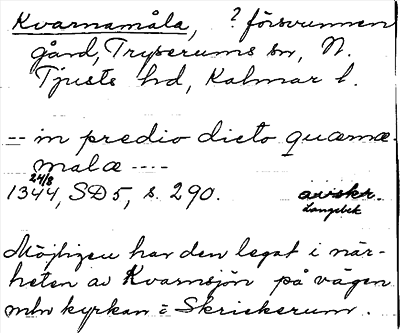 Kvarnamåla, ? försvunnen
gård, Tryserums sn, N.
Tjusts hd, Kalmar l.
-- in predio dicto quærnæ-
malæ ----
24/8
1344, SD 5, s. 290. avskr.
Langebek
Möjligen har den legat i när-
heten av Kvarnsjön på vägen
mln kyrkan o Skrickerum.